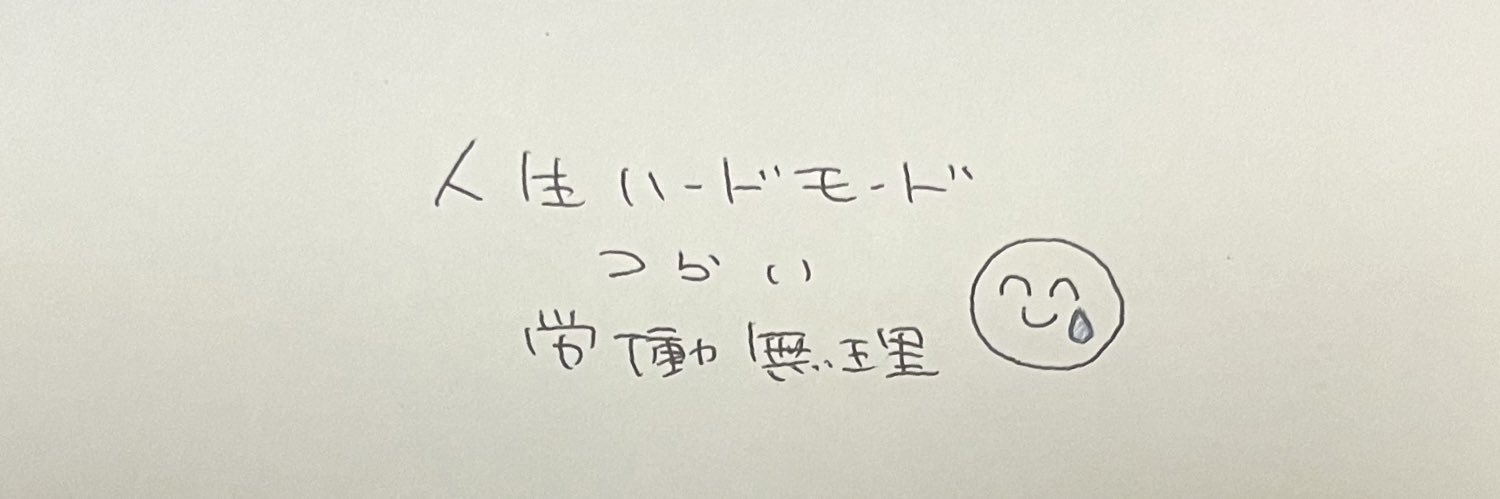 人生ハードモード
つらい
労働無理